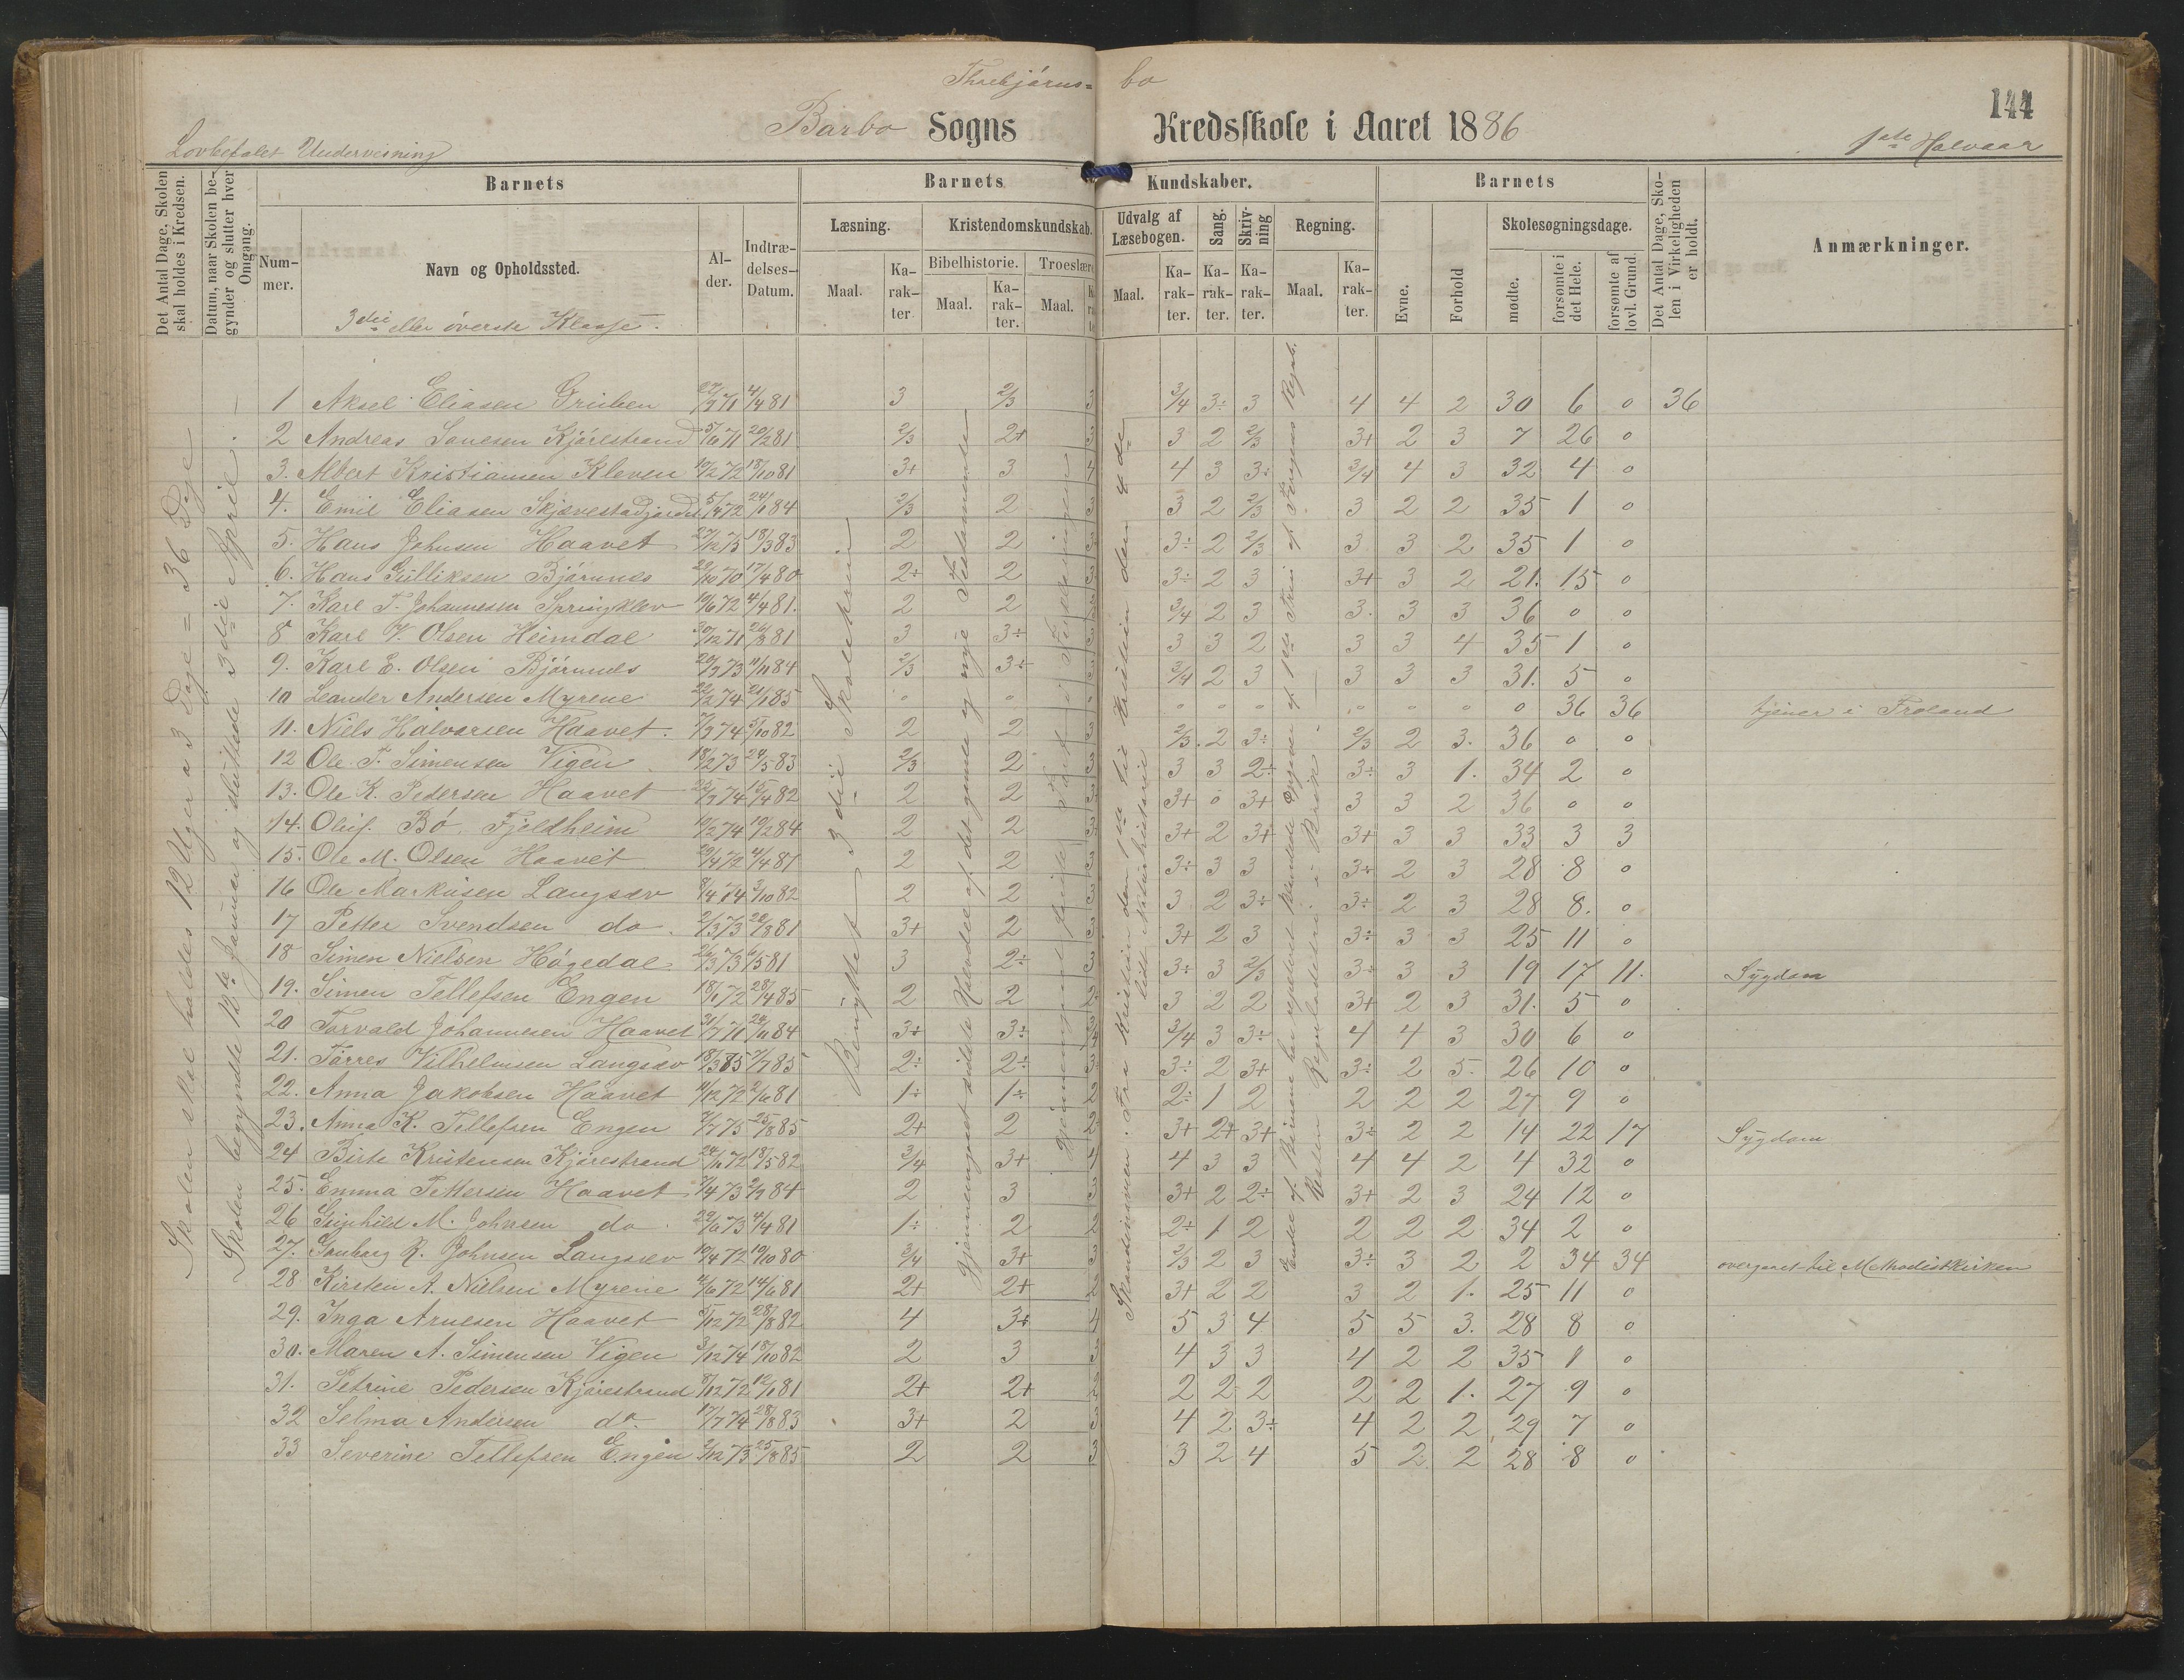 Thorbjörns= bo
144
Barbo Sogns Kredsskole i Aaret 1886
Lovbefalet Undervisning
1ste Halvaar
Det Antal Dage, Skolen skal holdes i Kredsen.
Datum, naar Skolen begynder og slutter hver Omgang.
Barnets
Barnets Kundskaber.
Barnets
Det Antal Dage, Skolen i Virkeligheden er holdt.
Anmærkninger.
Nummer.
Navn og Opholdssted.
Alder.
Indtrædelses-Datum.
Læsning.
Kristendomskundskab.
Udvalg af Læsebogen.
Sang.
Skrivning
Regning.
Evne.
Forhold
Skolesøgningsdage.
Maal.
Karakter
Bibelhistorie.
Troeslære
Maal.
Karakter.
Maal.
Maal.
Karakter.
Karakter.
Karakter.
Maal.
Karakter.
mødte.
forsømte i det Hele.
forsømte af lovl. Grund.
3die eller överste Klasse.
Skolen skal holdes 12 Uger a 3 Dage = 36 Dge
Skolen begyndte 12te Januar og sluttede 3die April.
Benyttet 3die Skoletrin
Gjennemgaaet sidste Halvdel af det gamle og nye Testamente
1 Aksel Eliasen Gruben 27/3 71 4/4 81 3 2/3 3 3/4 3÷ 3 4 4 2 30 6 0 36
2 Andreas Lavesen Kjörestrand 5/6 71 20/2 81 2/3 2+ 3 2 2/3 3+ 2 3 7 26 0
3. Albert Kristiansen Kleven 10/2 72 18/10 81 3+ 3 4 4 3 3÷ 3/4 4 3 32 4 0
4. Emil Eliasen 5/4 72 24/1 84 2/3 2 3 3 2 2/3 3 2 2 35 1 0
5. Hans Johnsen Haavet 27/12 75 18/3 83 2 2 3 3÷ 2 2/3 3 3 2 35 1 0
6. Hans Gulliksen Bjørnnes 29/10 70 17/4 80 2÷ 2 3 3÷ 2 3 3+ 3 2 21. 15 0
7. Karl T. Johannesen Springklev 10/6 72 4/4 81. 2 2 3/4 2 3 3. 3 3 36 0 0
8 Karl V. Olsen Heimdal 30/12 71 3 3÷ 3 3 3 2 3 3 4 35 1 0
9. Karl E. Olsen Bjørnnes 20/3 73 11/11 84 2/3 3÷ 3/4 2 3 3 3 3 31. 5 0
10 Leander Andersen Myrene 22/2 74 21/1 85 0 0 0 0 0 0 0 0 0 36 36 tjener i Froland
11. Niels Halvorsen Haavet. 5/10 82 2 2 3 2/3. 2 3÷ 2/3 2 3. 36 0 0
12 Ole T. Simensen Vigen 18/2 73 24/5 83 2/3 2 3 3 3 2÷ 3÷ 3 1. 34 2 0
13. Ole K. Pedersen Haavet 25/3 74 15/4 82 2 2 3 3+ 0 3+ 3 3 2 36 0 0
14. Oluf. Bö Fjeldheim 10/2 74 10/2 84 2 2 3 3+ 2 3+ 3+ 3 3 33 3 3
15. Ole M. Olsen Haavet 29/4 72 4/4 81 2 2 3 3÷ 3 3 3÷ 2 3 28 8 0
16 Ole Markusen Langsæv 8/4 74 3/10 82 2 2 3 3 2 3÷ 3÷ 2 3 28 8. 0
17 Petter Svendsen do. 2/3 73 20/8 81 3+ 2 3 3+ 2 3 3÷ 3 3 25 11 0
18 Simen Nielsen Högedal 26/3 73 6/5 81 3 2÷ 3 3÷ 3 2/3 3÷ 3 3 19 17 11. Sygdom
19. Simen Tellefsen Engen 18/1 72 28/4 85 2 2 2 3 2 2 3+ 2 3 31. 5 0
20 Torvald Johannesen Haavet 31/7 71 24/11 84 3÷ 3÷ 3/4 3/4 3 3÷ 4 4 3 30 6 0
21. Törres Vilhelmsen Langsæv 18/3 85 7/7 85 2÷ 2÷ 3 3÷ 2 3+ 3÷ 2 5. 26 10 0
22. Anna Jakobsen Haavet 11/12 72 2/6 81 1÷ 1÷ 2 2÷ 1 2 2 2 2 27 9 0
23. Anna K. Tellefsen Engen 7/7 75 25/8 85 2+ 2 2 3+ 2+ 3+ 3÷ 2 2 14 22 17 Sygdom
24 Birte Kristensen Kjörestrand 24/11 72 18/5 82 3/4 3+ 4 4 3 3 4 4 2 4 32 0
25. Emma Pettersen Haavet 7/4 73 2/7 84 2 3 3 3+ 2 2÷ 3+ 2 3 24 12 0
26 Gunhild M. Johnsen do. 29/6 73 4/4 81 1÷ 2 2 2÷ 1 2 2 2 2 34 2 0
27. Gunborg R. Johnsen Langsæv 10/4 72 19/10 80 3/4 3+ 3 2/3 2 3 3÷ 3 2 2 34 34 overgaaet til Methodistkirken
28 Kirsten A. Nielsen Myrene 4/6 72 14/6 81 2+ 2+ 2 3+ 2 2 3 2 1. 25 11 0
29. Inga Arnesen Haavet 5/12 72 28/8 82 4 3+ 4 5 3 4 5 5 3. 28 8 0
30. Maren A. Simensen Vigen 3/12 74 18/10 82 2 3 3 4 3 3 4 2 2 35 1 0
31. Petrine Pedersen Kjörestrand 8/12 72 12/1 81 2+ 2+ 2 2 2 2 2 2 1. 27 9 0
32 Selma Andersen do. 17/7 74 28/8 83 3+ 2 3 4 2 3÷ 4 2 2 29 7 0
33 Severine Tellefsen Engen 2/12 73 25/8 85 2 2 3 3 2 4 5 2 2 28 8 0